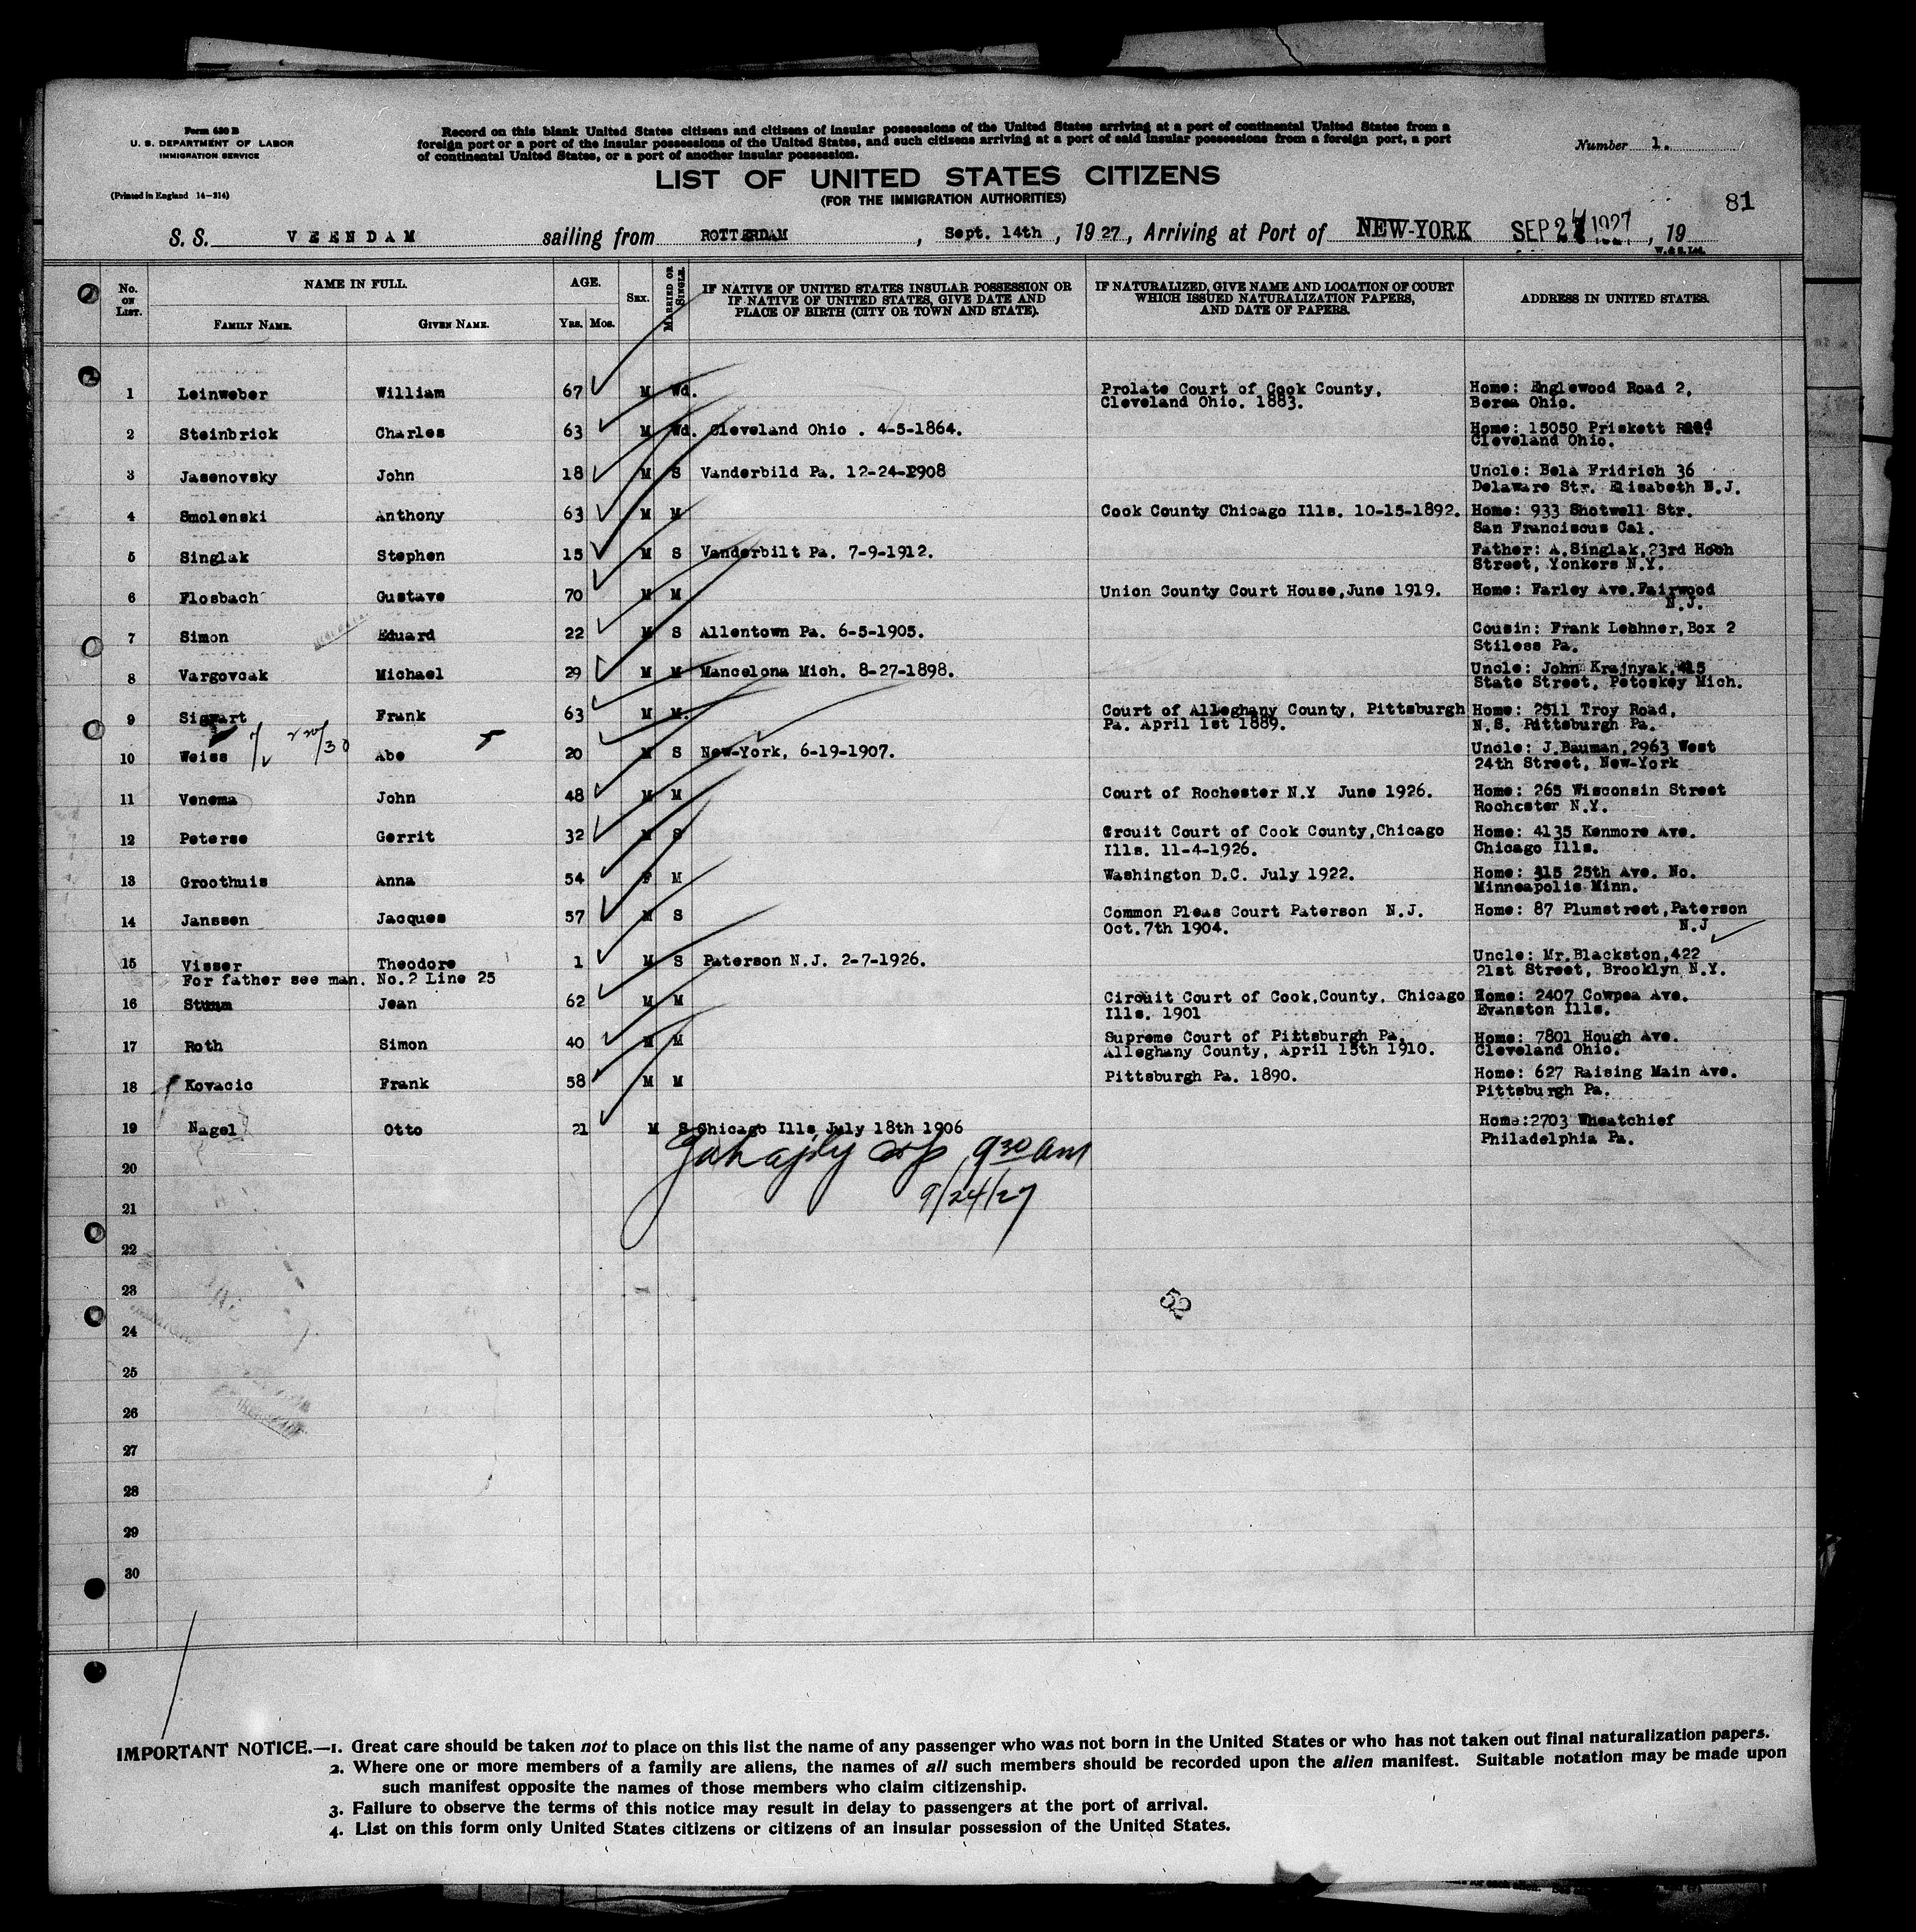 Form 630 B
U. S. DEPARTMENT OF LABOR
IMMIGRATION SERVICE
(Printed in England 14-314)
Record on this blank United States citizens and citizens of insular possessions of the United States arriving at a port of continental United States from a
foreign port or a port of the insular possessions of the United States, and such citizens arriving at a port of said insular possessions from a foreign port, a port
of continental United States, or a port of another insular possession.
Number 1.
LIST OF UNITED STATES CITIZENS
(FOR THE IMMIGRATION AUTHORITIES)
81
S. S. VEENDAM sailing from ROTTERDAM, Sept. 14th, 1927, Arriving at Port of NEW-YORK SEP 24 1927, 19
W. & S. Ltd.
No. ON LIST. NAME IN FULL. FAMILY NAME. GIVEN NAME. AGE. YRS. MOS. SEX. MARRIED OR SINGLE. IF NATIVE OF UNITED STATES INSULAR POSSESSION OR IF NATIVE OF UNITED STATES, GIVE DATE AND PLACE OF BIRTH (CITY OR TOWN AND STATE). IF NATURALIZED, GIVE NAME AND LOCATION OF COURT WHICH ISSUED NATURALIZATION PAPERS, AND DATE OF PAPERS. ADDRESS IN UNITED STATES.
1 Leinweber William 67 M Wd. Prolate Court of Cook County, Home: Englewood Road 2,
Cleveland Ohio. 1883. Berea Ohio.
2 Steinbrick Charles 63 M Wd. Cleveland Ohio . 4-5-1864. Home: 15050 Priskett Road
Cleveland Ohio.
3 Jasenovsky John 18 M S Vanderbild Pa. 12-24-1908 Uncle: Bela Fridrich 36
Delaware Str. Elisabeth N.J.
4 Smolenski Anthony 63 M M Cook County Chicago Ills. 10-15-1892. Home: 933 Shotwell Str.
San Franciscus Cal.
5 Singlak Stephen 15 M S Vanderbilt Pa. 7-9-1912. Father: A.Singlak,23rd Hoch
Street, Yonkers N.Y.
6 Flosbach Gustave 70 M M Union County Court House,June 1919. Home: Farley Ave.Fairwood
N.J.
7 Simon Eduard 22 M S Allentown Pa. 6-5-1905. Cousin: Frank Lehhner,Box 2
Stiless Pa.
8 Vargovcak Michael 29 M M Mancelona Mich. 8-27-1898. Uncle: John Krajnyak,415
State Street, Petoskey Mich.
9 Sigwart Frank 63 M M. Court of Alleghany County, Pittsburgh Home: 2511 Troy Road,
Pa. April 1st 1889. N.S. Pittsburgh Pa.
10 Weiss Abe 20 M S New-York, 6-19-1907. Uncle: J.Bauman,2963 West
24th Street, New-York
11 Venema John 48 M M Court of Rochester N.Y June 1926. Home: 265 Wisconsin Street
Rochester N.Y.
12 Peterse Gerrit 32 M S Crcuit Court of Cook County,Chicago Home: 4135 Kenmore Ave.
Ills. 11-4-1926. Chicago Ills.
13 Groothuis Anna 54 F M Washington D.C. July 1922. Home: 315 25th Ave. No.
Minneapolis Minn.
14 Janssen Jacques 57 M S Common Pleas Court Paterson N.J. Home: 87 Plumstreet,Paterson
Oct.7th 1904. N.J
15 Visser Theodore 1 M S Paterson N.J. 2-7-1926. Uncle: Mr.Blackston,422
For father see man. No.2 Line 25 21st Street, Brooklyn N.Y.
16 Stumm Jean 62 M M Circuit Court of Cook,County, Chicago Home: 2407 Cowpea Ave.
Ills. 1901 Evanston Ills.
17 Roth Simon 40 M M Supreme Court of Pittsburgh Pa, Home: 7801 Hough Ave.
Alleghany County, April 15th 1910. Cleveland Ohio.
18 Kovacic Frank 58 M M Pittsburgh Pa. 1890. Home: 627 Raising Main Ave.
Pittsburgh Pa.
19 Nagel Otto 21 M S Chicago Ills July 18th 1906 Home:2703 Wheatchief
Philadelphia Pa.
20 9 30 am
21 9/24/27
22
23 52
24
25
26
27
28
29
30
IMPORTANT NOTICE.—1. Great care should be taken not to place on this list the name of any passenger who was not born in the United States or who has not taken out final naturalization papers.
2. Where one or more members of a family are aliens, the names of all such members should be recorded upon the alien manifest. Suitable notation may be made upon
such manifest opposite the names of those members who claim citizenship.
3. Failure to observe the terms of this notice may result in delay to passengers at the port of arrival.
4. List on this form only United States citizens or citizens of an insular possession of the United States.